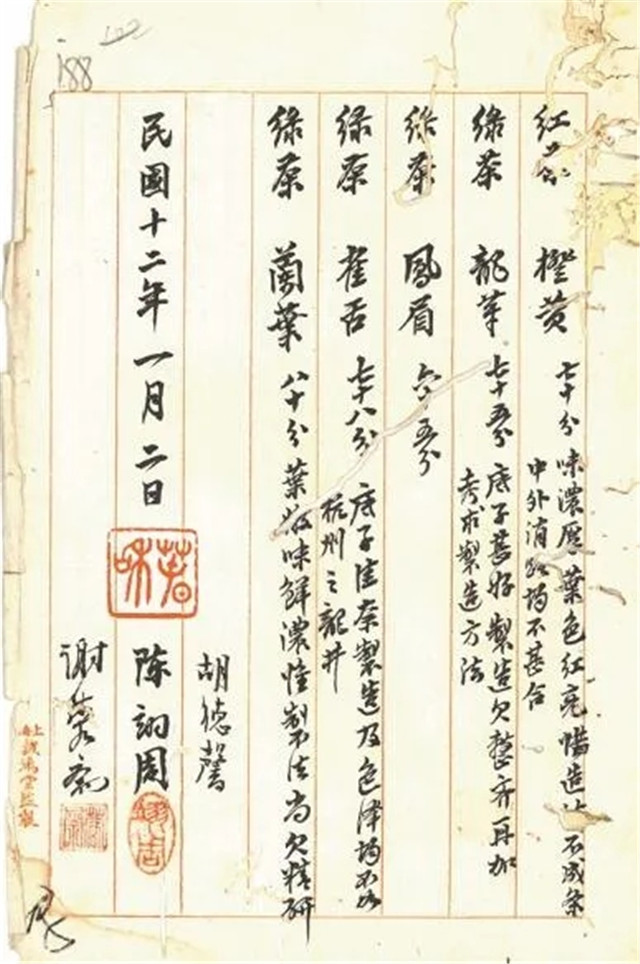 188
红茶 橙黄 七十分 味濃厚葉色红亮惜造法不成条
中外消路均不甚合
绿茶 龍芽 七十五分 底子甚好製造欠整齐再加
考求製造方法
绿茶 鳳眉 六十五分
绿茶 雀舌 七十八分 底子佳奈製造及色泽均不如
杭州之龍井
绿茶 蘭葉 八十分 葉收味鮮濃惟製法尚欠精研
胡德馨
民國十二年一月二日 陈翊周
謝
上海